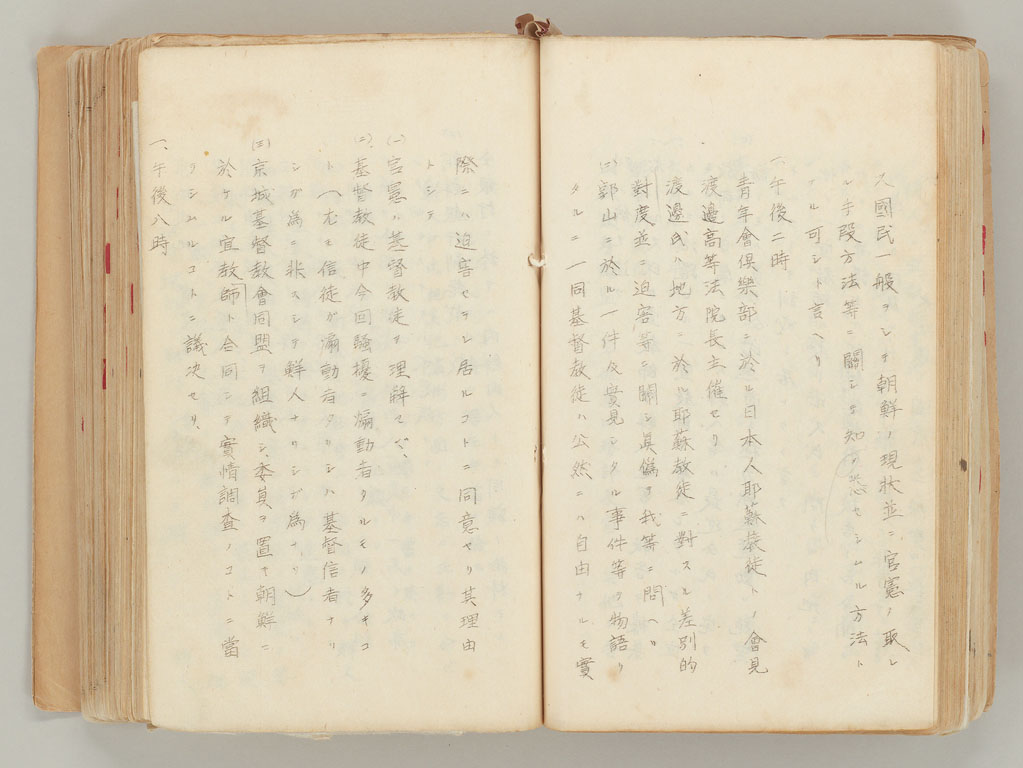 ハ國民一般ヲシテ朝鮮ノ現狀並ニ官憲ノ取レ
ル手段方法等ニ關シテ知悉セシムル方法ト
アル可シト言ヘリ
一、午後二時
青年會倶樂部ニ於ル日本人耶蘇敎徒トノ會見
渡邊高等法院長主催セリ
渡邊氏ハ地方ニ於ル耶蘇敎徒ニ對スル差別的
對度並ニ迫害等ニ關シ眞僞ヲ我等ニ問ヘリ
郭山ニ於ル一件及實見シタル事件等ヲ物語リ
タルニ一同基督敎徒ハ公然ニハ自由ナルモ實
際ニハ迫害セラレ居ルコトニ同意セリ其理由
トシテ
(一)官憲ハ基督敎徒ヲ理解セズ、
(二)基督敎徒中今回騷擾ニ煽動者タルモノ多キコ
ト(尤モ信徒ガ煽動者タリシハ基督信者ナリ
シガ為ニ非スシテ鮮人ナリシガ為ナリ)
(三)京城基督敎會同盟ヲ組織シ、委員ヲ置キ朝鮮ニ
於ケル宣敎師ト合同シテ實情調査ノコトニ當
ラシムルコトニ議決セリ、
一、午後八時